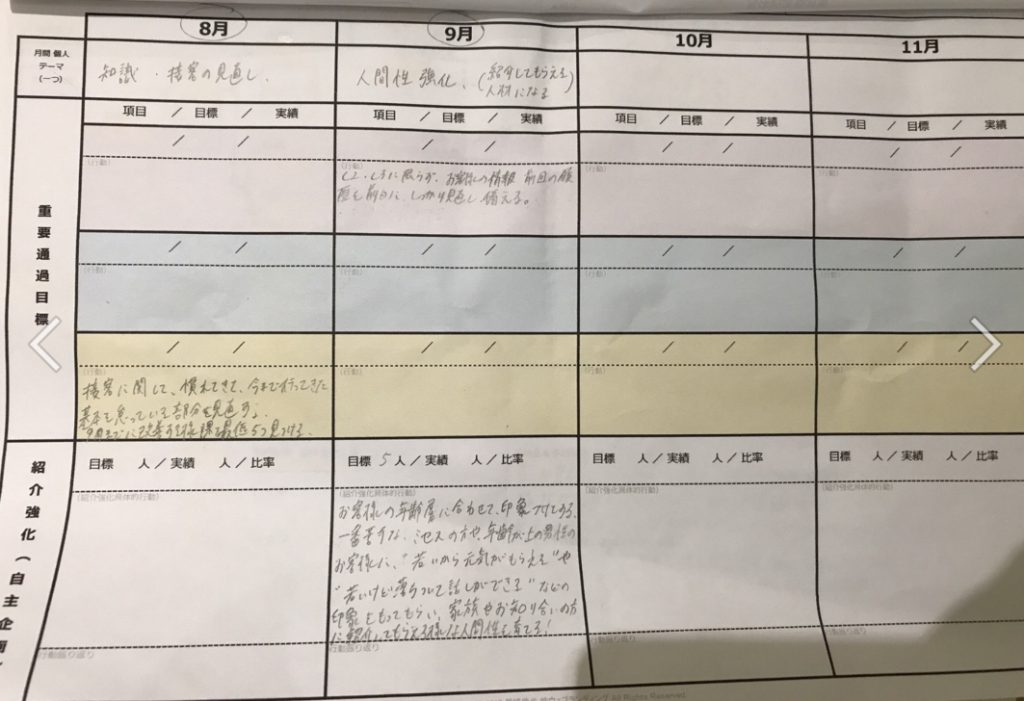 8月 9月 10月 11月
月間 個人
テーマ
(一つ)
知識・接客の見直し.
人間性 強化、(紹介してもらえる
人材になる)
項目 / 目標 / 実績
項目 / 目標 / 実績
項目 / 目標 / 実績
項目 / 目標 / 実績
重要通過目標
/ /
/ /
/ /
/ /
(行動)
(行動)
に限らず、お客様の情報 前回の
前日に、しっかり見直し 備える。
(行動)
(行動)
/ /
/ /
/ /
/ /
(行動)
(行動)
(行動)
(行動)
/ /
/ /
/ /
/ /
(行動)
接客に関して、慣れてきて、今まで行ってきた
基本を怠っている部分を見直す。
改善する 課題 最低5つ見つける.
(行動)
(行動)
(行動)
紹介強化(自主企画
目標 人/実績 人/比率
目標 5人/実績 人/比率
目標 人/実績 人/比率
目標 人/実績 人/比率
(紹介強化具体的行動)
(紹介強化具体的行動)
お客様の年齢層に合わせて、印象づけてする、
一番苦手な、ミセスの方や、年齢が上の男性の
お客様に、"若いから元気がもらえる"や
"若いけど 話しができる"などの
印象をもってもらい、家族やお知り合いの方
に紹介してもらえる様な人間性を育てる!
(紹介強化具体的行動)
(紹介強化具体的行動)
行動振り返り
行動振り返り
行動振り返り
行動振り返り
All Rights Reserved.